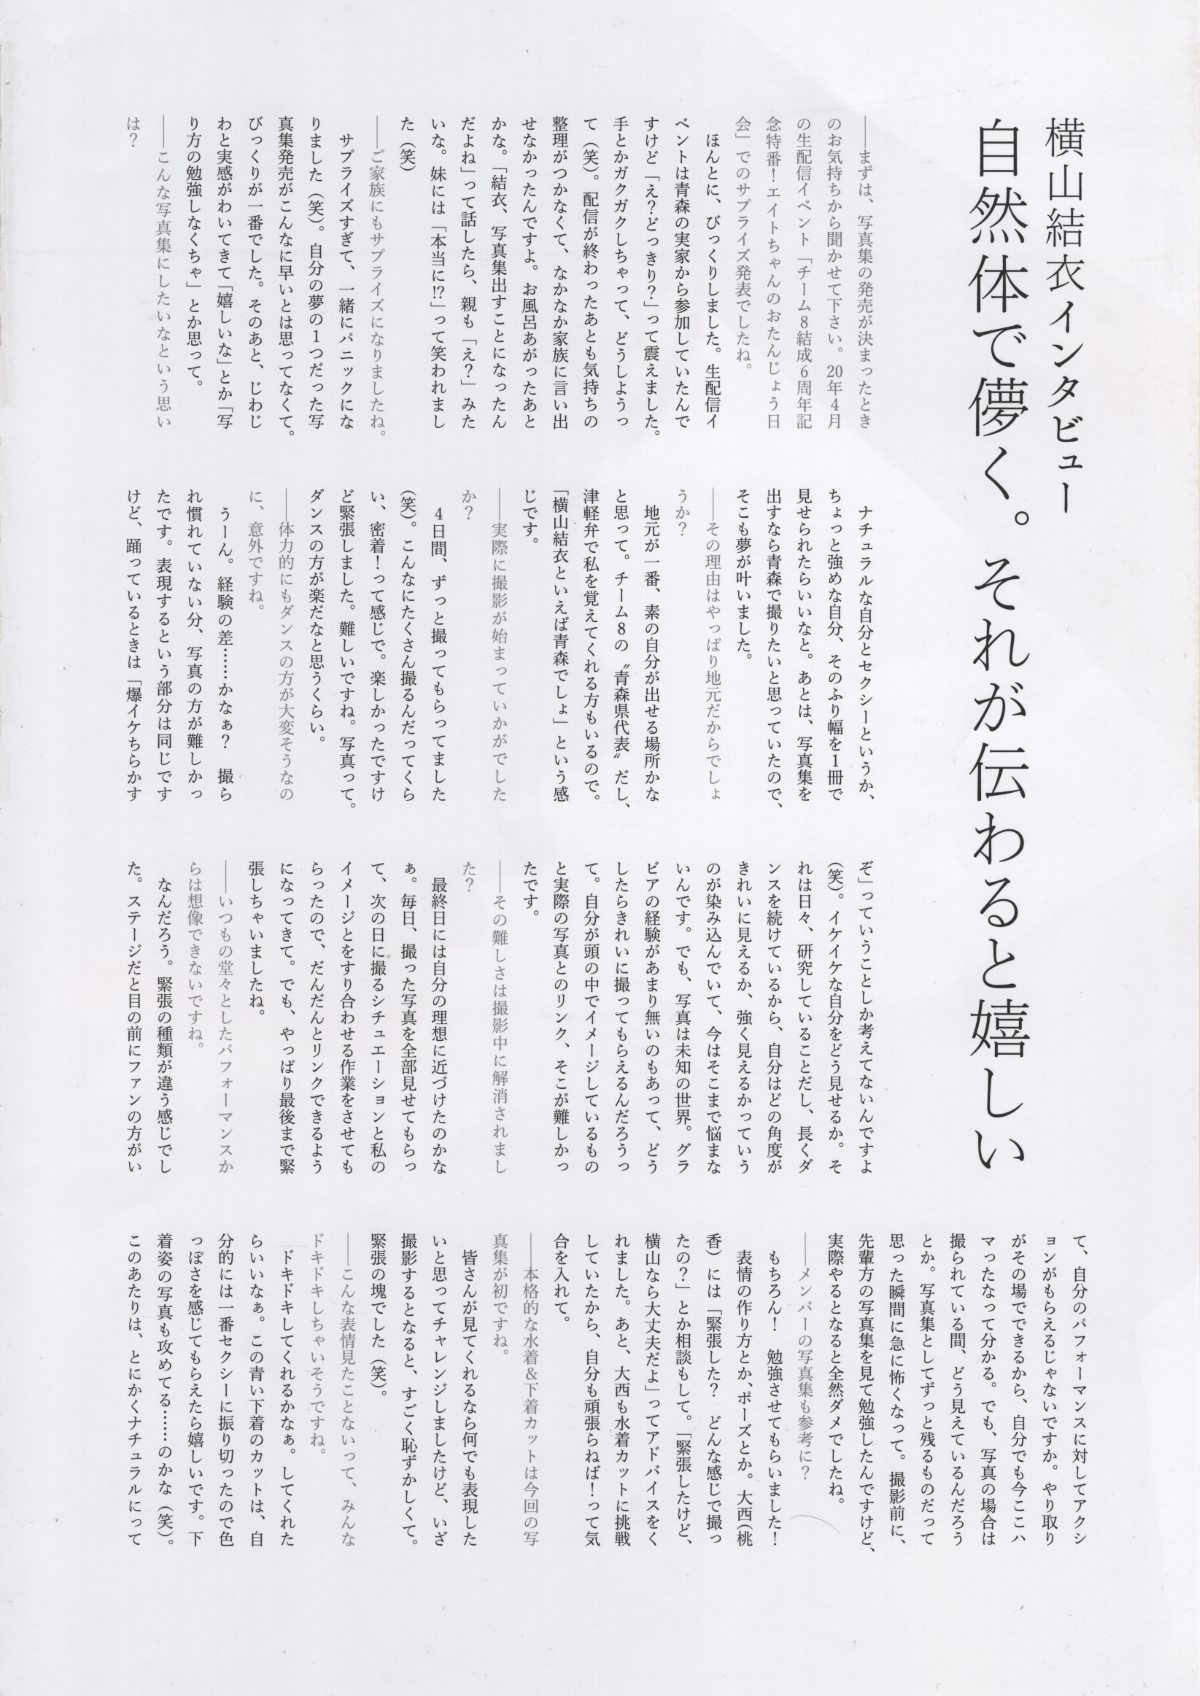 横山結衣インタビュー
自然体で儚く。それが伝わると嬉しい
――まずは、写真集の発売が決まったとき
のお気持ちから聞かせて下さい。20年4月
の生配信イベント「チーム8結成6周年記
念特番！エイトちゃんのおたんじょう日
会」でのサプライズ発表でしたね。
ほんとに、びっくりしました。生配信イ
ベントは青森の実家から参加していたんで
すけど「え？どっきり？」って震えました。
手とかガクガクしちゃって、どうしようっ
て（笑）。配信が終わったあとも気持ちの
整理がつかなくて、なかなか家族に言い出
せなかったんですよ。お風呂あがったあと
かな。「結衣、写真集出すことになったん
だよね」って話したら、親も「え？」みた
いな。妹には「本当に!?」って笑われまし
た（笑）
――ご家族にもサプライズになりましたね。
サプライズすぎて、一緒にパニックにな
りました（笑）。自分の夢の1つだった写
真集発売がこんなに早いとは思ってなくて。
びっくりが一番でした。そのあと、じわじ
わと実感がわいてきて「嬉しいな」とか「写
り方の勉強しなくちゃ」とか思って。
――こんな写真集にしたいなという思い
は？
ナチュラルな自分とセクシーというか、
ちょっと強めな自分、そのふり幅を1冊で
見せられたらいいなと。あとは、写真集を
出すなら青森で撮りたいと思っていたので、
そこも夢が叶いました。
――その理由はやっぱり地元だからでしょ
うか？
地元が一番、素の自分が出せる場所かな
と思って。チーム8の〝青森県代表〟だし、
津軽弁で私を覚えてくれる方もいるので。
「横山結衣といえば青森でしょ」という感
じです。
――実際に撮影が始まっていかがでした
か？
4日間、ずっと撮ってもらってました
（笑）。こんなにたくさん撮るんだってくら
い、密着！って感じで。楽しかったですけ
ど緊張しました。難しいですね。写真って。
ダンスの方が楽だなと思うくらい。
――体力的にもダンスの方が大変そうなの
に、意外ですね。
うーん。経験の差……かなぁ？　撮ら
れ慣れていない分、写真の方が難しかっ
たです。表現するという部分は同じです
けど、踊っているときは「爆イケちらかす
ぞ」っていうことしか考えてないんですよ
（笑）。イケイケな自分をどう見せるか。そ
れは日々、研究していることだし、長くダ
ンスを続けているから、自分はどの角度が
きれいに見えるか、強く見えるかっていう
のが染み込んでいて、今はそこまで悩まな
いんです。でも、写真は未知の世界。グラ
ビアの経験があまり無いのもあって、どう
したらきれいに撮ってもらえるんだろうっ
て。自分が頭の中でイメージしているもの
と実際の写真とのリンク、そこが難しかっ
たです。
――その難しさは撮影中に解消されまし
た？
最終日には自分の理想に近づけたのかな
ぁ。毎日、撮った写真を全部見せてもらっ
て、次の日に撮るシチュエーションと私の
イメージとをすり合わせる作業をさせても
らったので、だんだんとリンクできるよう
になってきて。でも、やっぱり最後まで緊
張しちゃいましたね。
――いつもの堂々としたパフォーマンスか
らは想像できないですね。
なんだろう。緊張の種類が違う感じでし
た。ステージだと目の前にファンの方がい
て、自分のパフォーマンスに対してアクシ
ョンがもらえるじゃないですか。やり取り
がその場でできるから、自分でも今ここハ
マったなって分かる。でも、写真の場合は
撮られている間、どう見えているんだろう
とか。写真集としてずっと残るものだって
思った瞬間に急に怖くなって。撮影前に、
先輩方の写真集を見て勉強したんですけど、
実際やるとなると全然ダメでしたね。
――メンバーの写真集も参考に？
もちろん！　勉強させてもらいました！
表情の作り方とか、ポーズとか。大西（桃
香）には「緊張した？　どんな感じで撮っ
たの？」とか相談もして。「緊張したけど、
横山なら大丈夫だよ」ってアドバイスをく
れました。あと、大西も水着カットに挑戦
していたから、自分も頑張らねば！って気
合を入れて。
――本格的な水着＆下着カットは今回の写
真集が初ですね。
皆さんが見てくれるなら何でも表現した
いと思ってチャレンジしましたけど、いざ
撮影するとなると、すごく恥ずかしくて。
緊張の塊でした（笑）。
――こんな表情見たことないって、みんな
ドキドキしちゃいそうですね。
ドキドキしてくれるかなぁ。してくれた
らいいなぁ。この青い下着のカットは、自
分的には一番セクシーに振り切ったので色
っぽさを感じてもらえたら嬉しいです。下
着姿の写真も攻めてる……のかな（笑）。
このあたりは、とにかくナチュラルにって